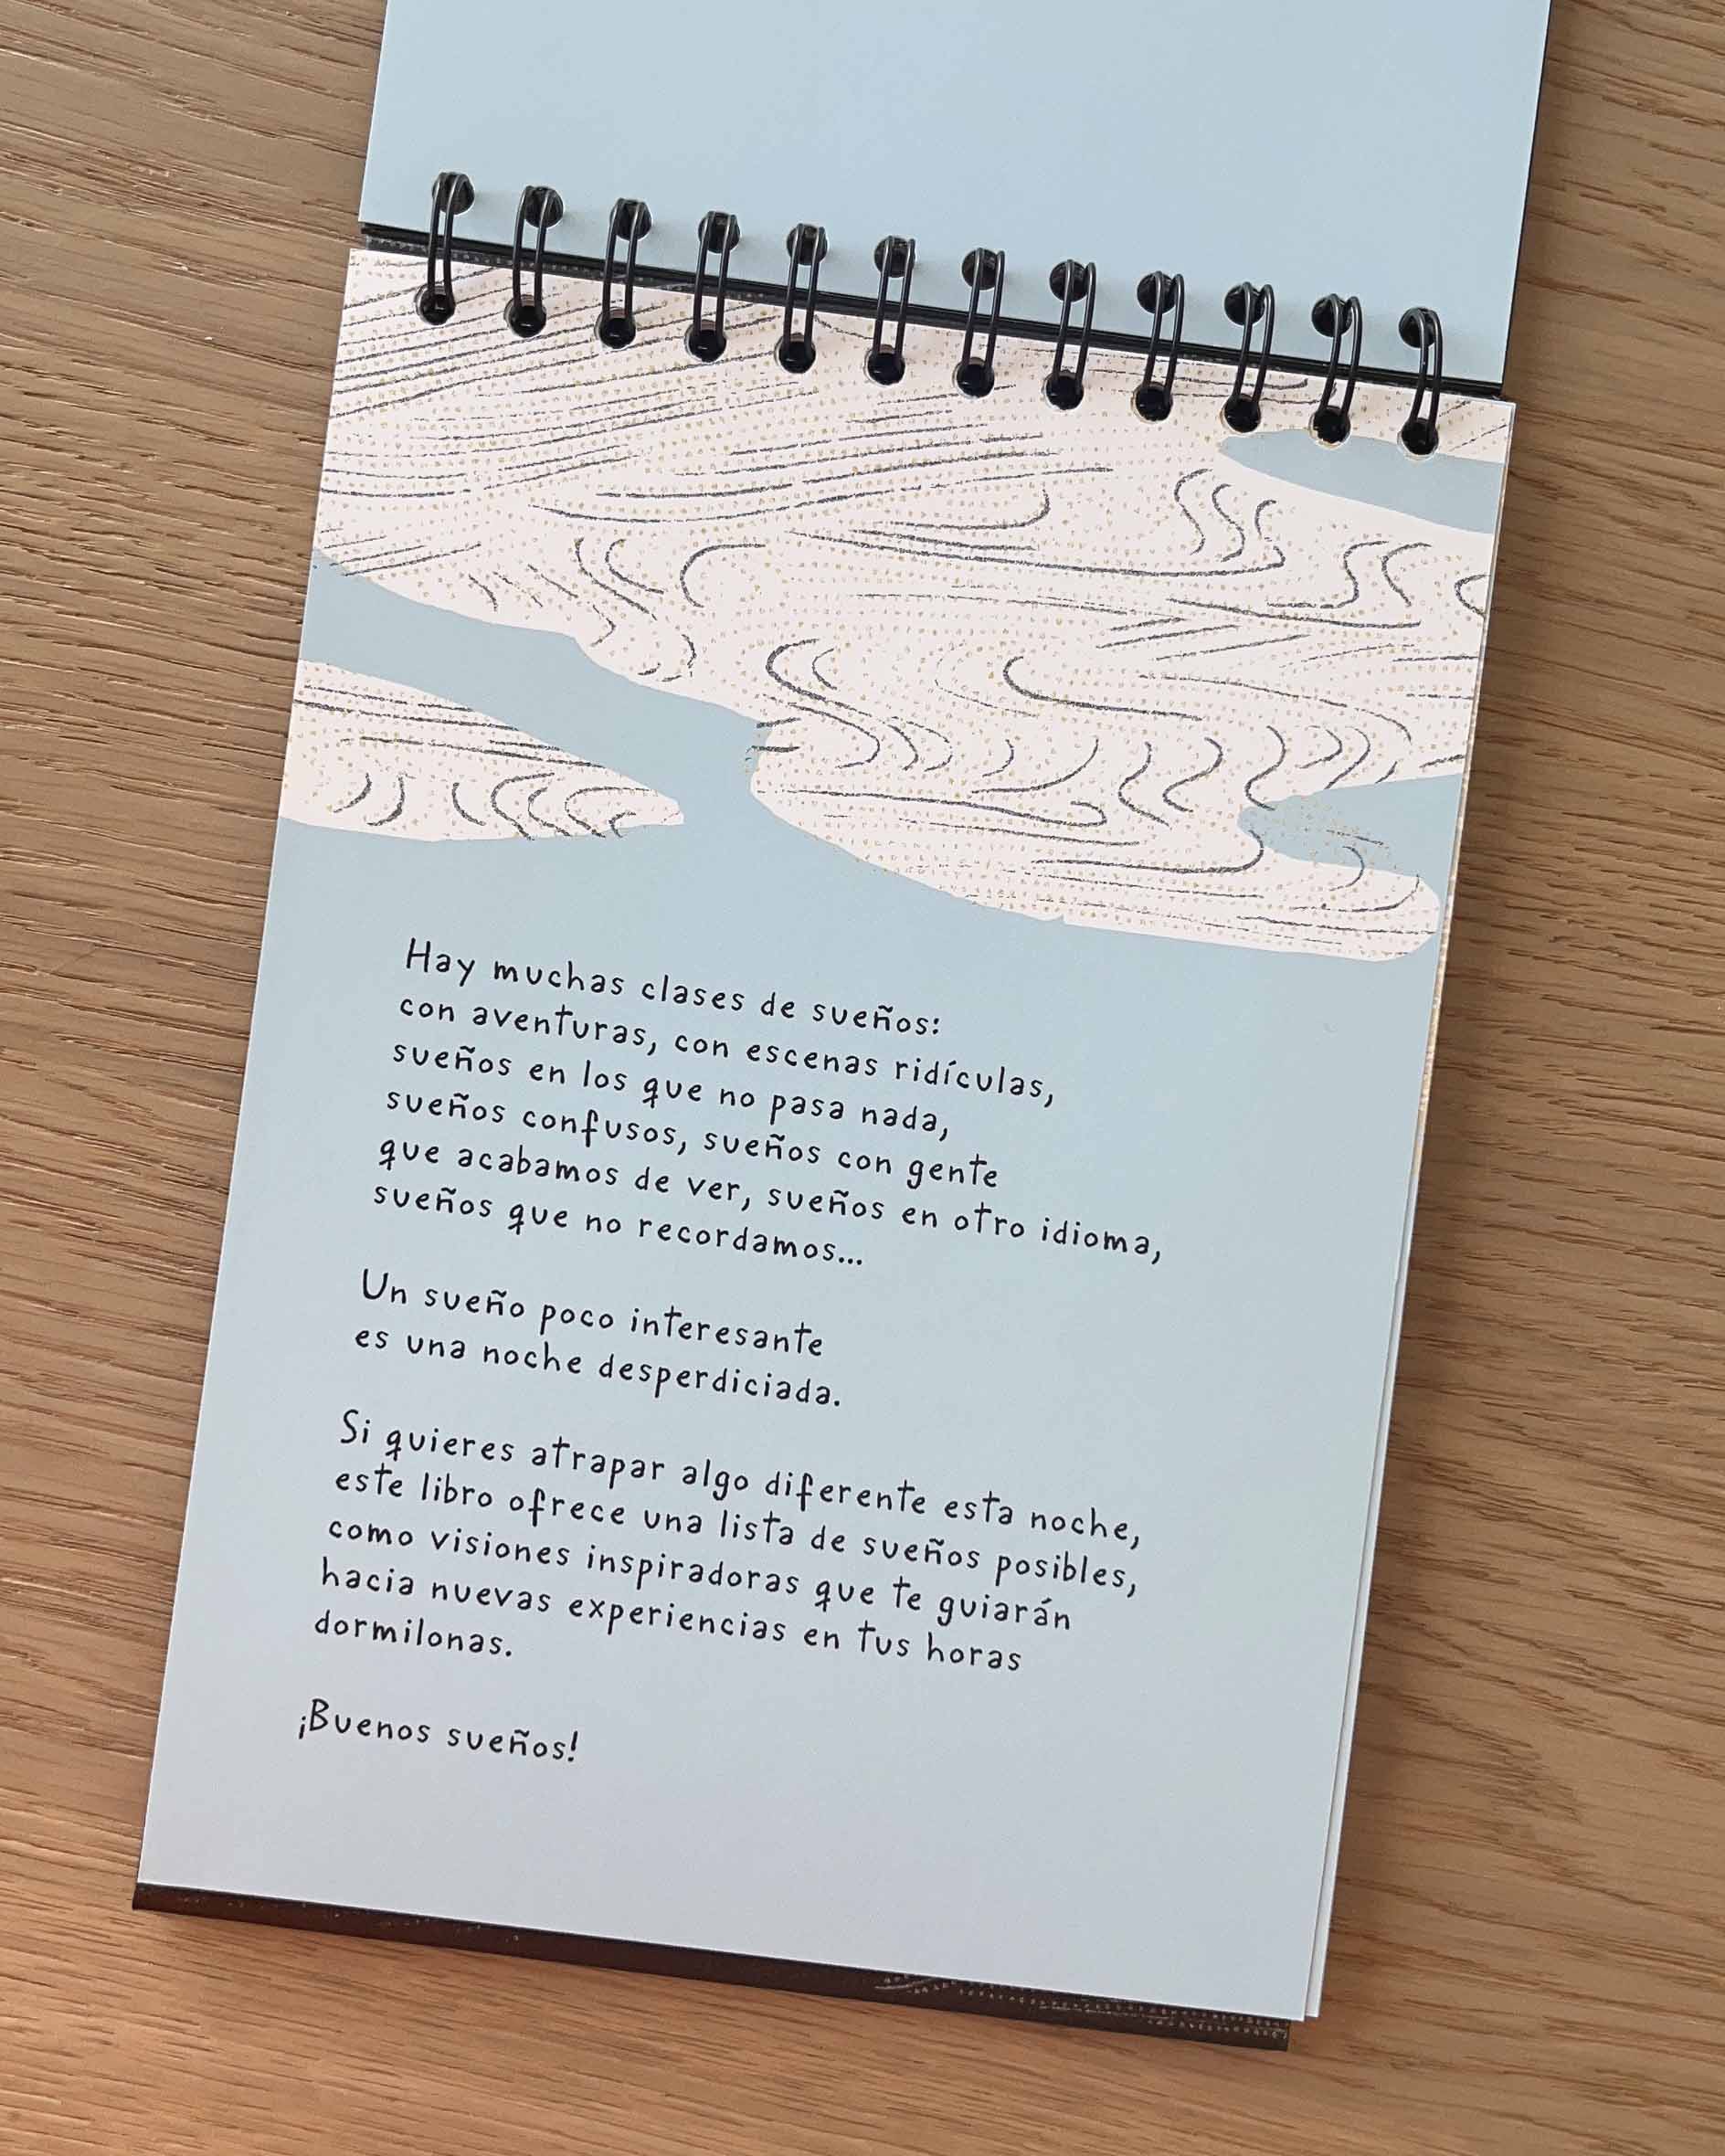 Hay muchas clases de sueños:
con aventuras, con escenas ridículas,
sueños en los que no pasa nada,
sueños confusos, sueños con gente
que acabamos de ver, sueños en otro idioma,
sueños que no recordamos...
Un sueño poco interesante
es una noche desperdiciada.
Si quieres atrapar algo diferente esta noche,
este libro ofrece una lista de sueños posibles,
como visiones inspiradoras que te guiarán
hacia nuevas experiencias en tus horas
dormilonas.
¡Buenos sueños!